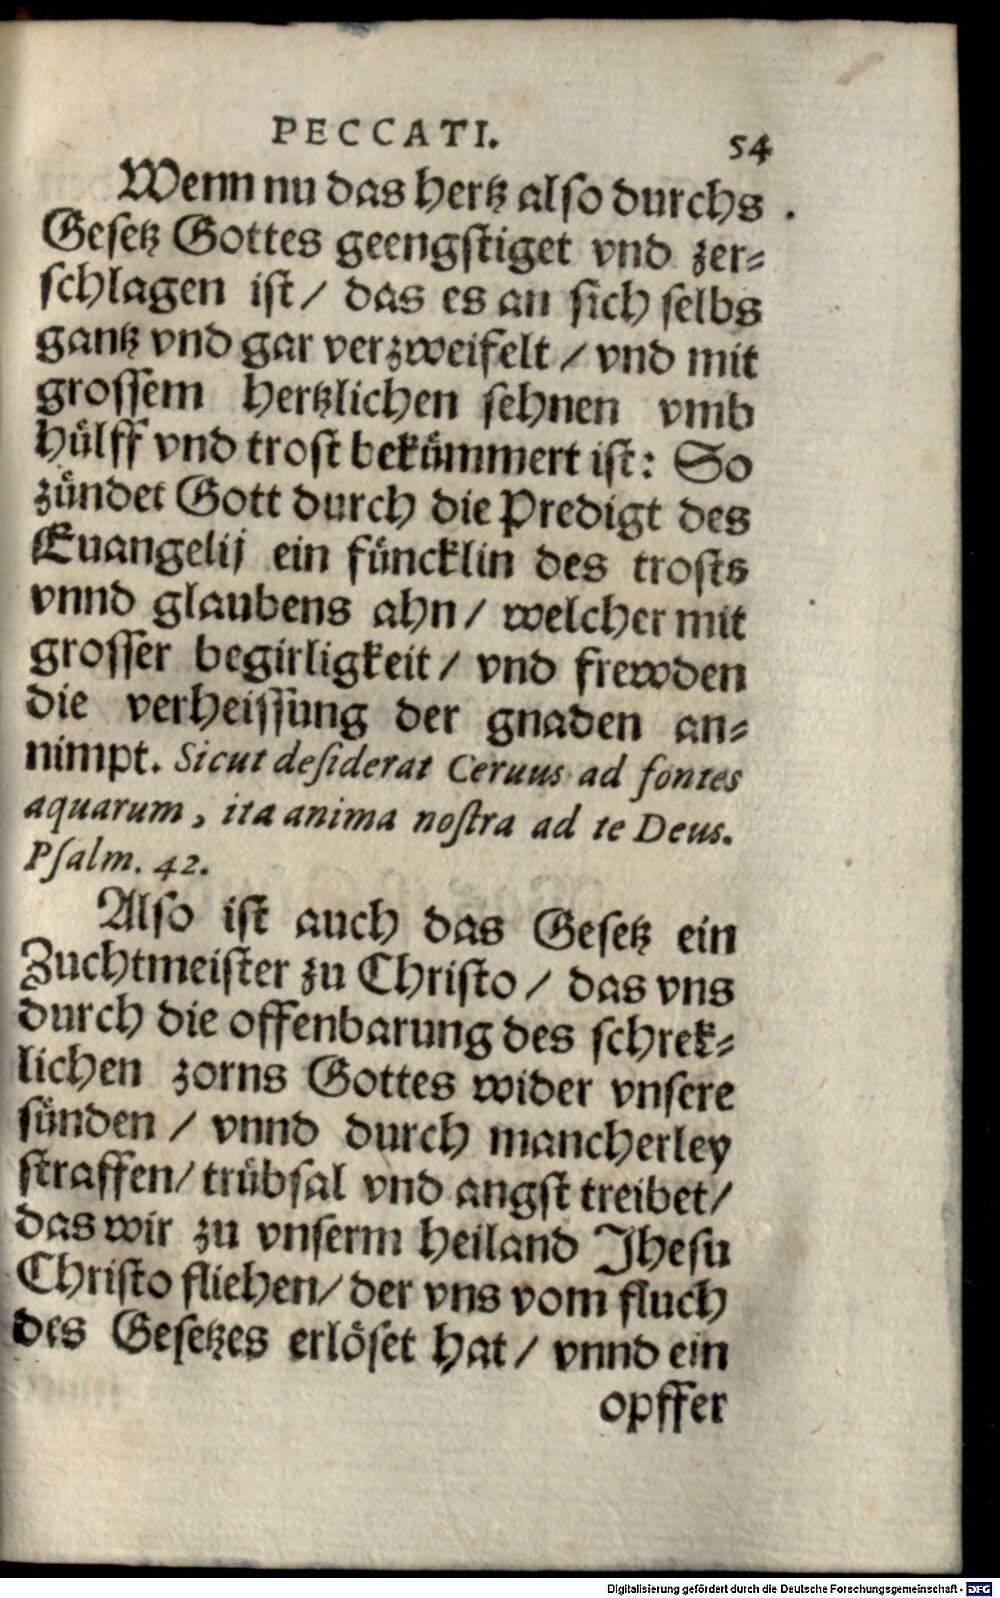 PECCATI. 54
Wenn nu das hertz also durchs
Gesetz Gottes geengstiget vnd zer⸗
schlagen ist / das es an sich selbs
gantz vnd gar verzweifelt / vnd mit
grossem hertzlichen sehnen vmb
huͤlff vnd trost bekuͤmmert ist: So
zuͤndet Gott durch die Predigt des
Euangelij ein fuͤncklin des trosts
vnnd glaubens ahn / welcher mit
grosser begirligkeit / vnd frewden
die verheissung der gnaden an⸗
nimpt. Sicut desiderat Ceruus ad fontes
aquarum, ita anima nostra ad te Deus.
Psalm. 42.
Also ist auch das Gesetz ein
Zuchtmeister zu Christo / das vns
durch die offenbarung des schrek⸗
lichen zorns Gottes wider vnsere
suͤnden / vnnd durch mancherley
straffen / truͤbsal vnd angst treibet /
das wir zu vnserm Heiland Jhesu
Christo fliehen / der vns vom fluch
des Gesetzes erloͤset hat / vnnd ein
opffer
Digitalisierung gefördert durch die Deutsche Forschungsgemeinschaft - DFG